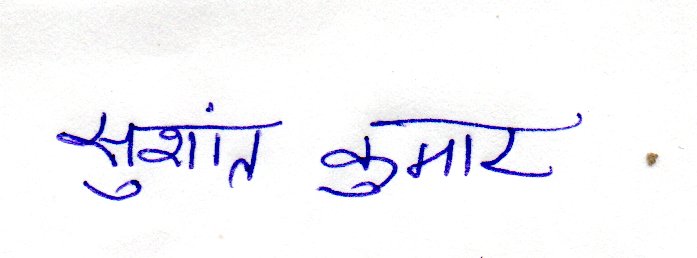 सुशांत कुमार